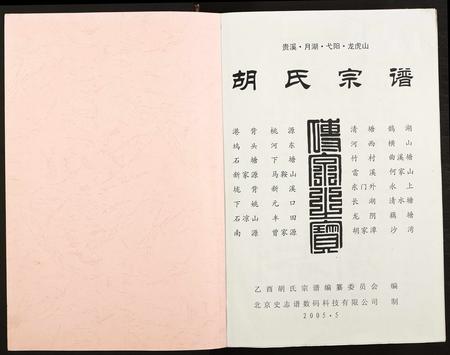 贵溪·月湖·弋阳·龙虎山
胡氏宗谱
港背 桃源 清塘 鹤湖
坞头 河东 河西 横山
石塘 下塘 竹村 曲溪塘
新家源 马鞍山 雷溪 何家山
垅背 山溪 东门外 永上
下姚 新口 长湖 清水塘
石凉山 元田 龙阴 藕塘
南源 丰 曾家源 胡家漳 沙湾
傳家至寶
乙酉胡氏宗谱编纂委员会 编
北京史志谱数码科技有限公司 制
2005.5